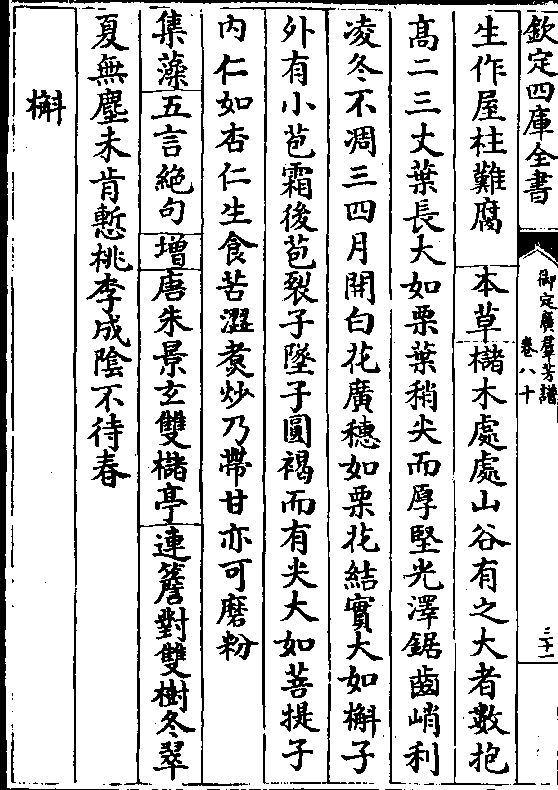 欽定四庫全書
御定廣羣芳譜
卷八十
三十一
生作屋柱難腐 本草櫧木處處山谷有之大者數抱
髙二三丈葉長大如栗葉稍尖而厚堅光澤鋸齒峭利
凌冬不凋三四月開白花廣穗如栗花結實大如槲子
外有小苞霜後苞裂子墜子圓褐而有尖大如菩提子
内仁如杏仁生食苦澀煑炒乃帶甘亦可磨粉
集藻五言絶句増唐朱景玄雙櫧亭連簷對雙樹冬翠
夏無塵未肯慙桃李成陰不待春
槲